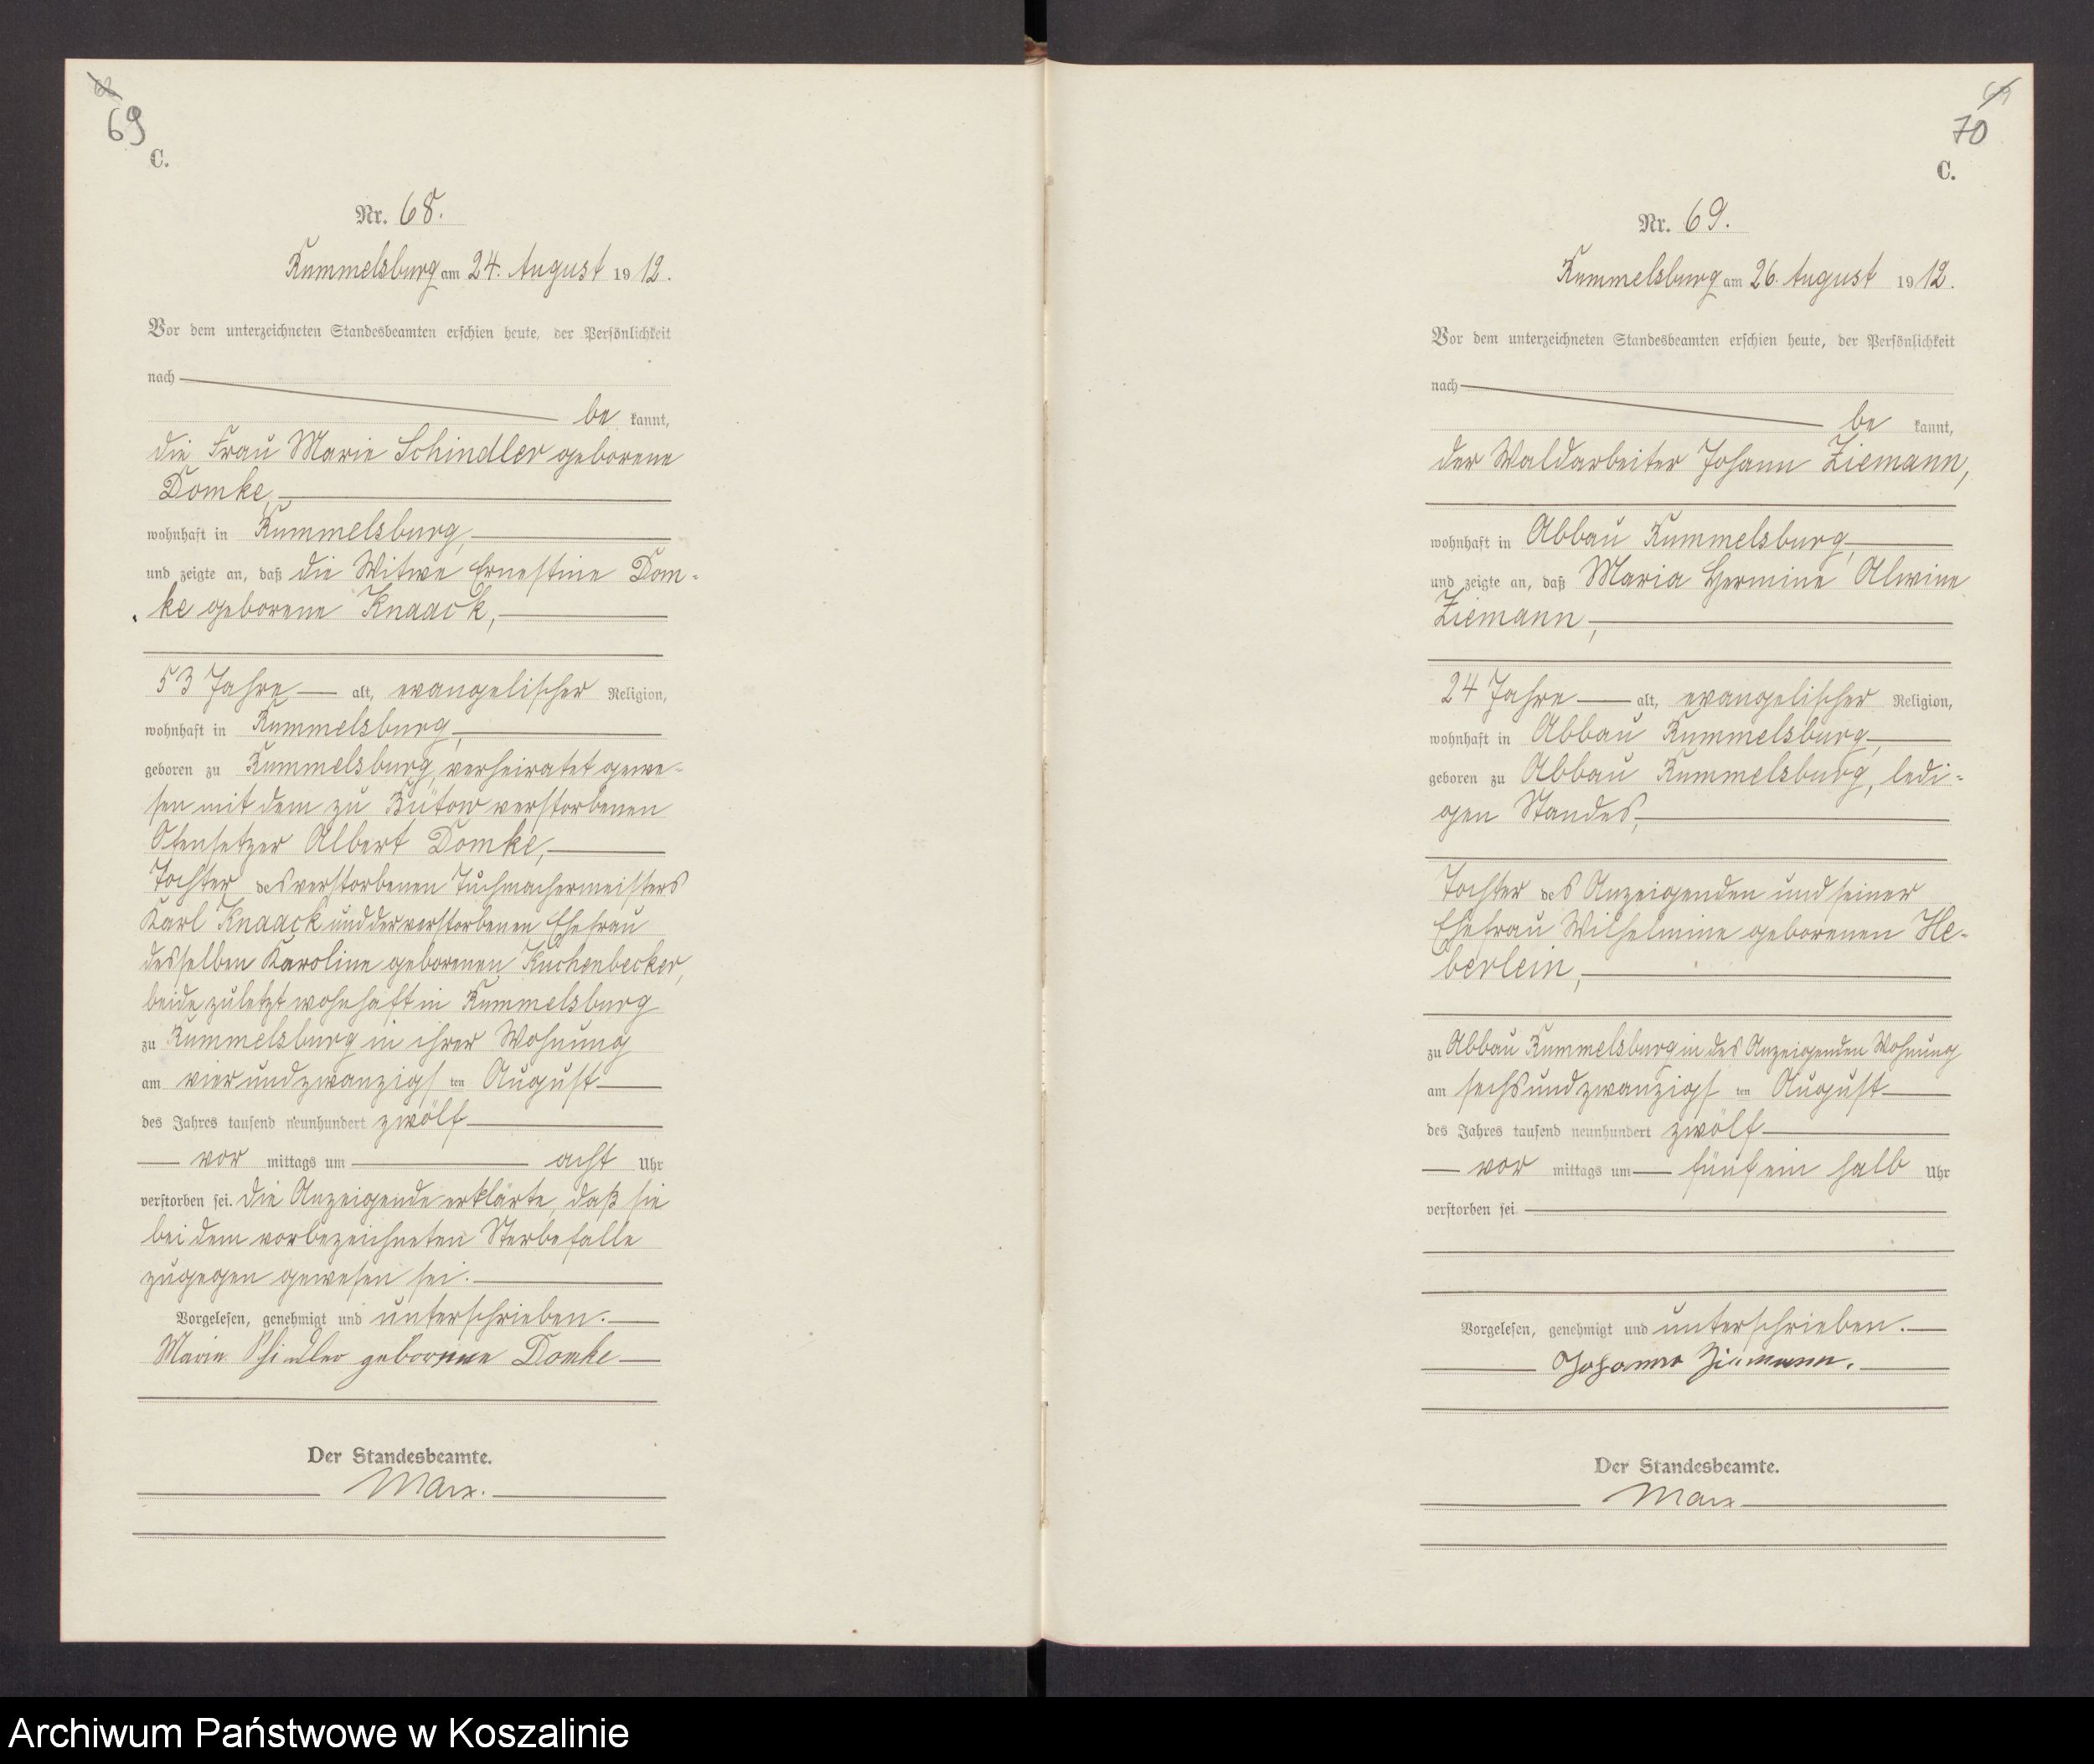 69
C.
Nr. 68.
Rummelsburg am 24. August 1912.
Vor dem unterzeichneten Standesbeamten erschien heute, der Persönlichkeit
nach
be kannt,
die Frau Marie Schindler geborene
Domke,
wohnhaft in Rummelsburg,
und zeigte an, daß die Witwe Ernestine Dom-
ke geborene Knaack,
53 Jahre alt, evangelischer Religion,
wohnhaft in Rummelsburg,
geboren zu Rummelsburg, verheiratet gewe-
sen mit dem zu Bütow verstorbenen
Ofensetzer Albert Domke,
Tochter des verstorbenen Tuchmachermeisters
Karl Knaack und der verstorbenen Ehefrau
desselben Karoline geborenen Kuchenbecker,
beide zuletzt wohnhaft in Rummelsburg
zu Rummelsburg in ihrer Wohnung
am vierundzwanzigs ten August
des Jahres tausend neunhundert zwölf
vor mittags um acht Uhr
verstorben sei. Die Anzeigende erklärte, daß sie
bei dem vorbezeichneten Sterbefalle
zugegen gewesen sei.
Vorgelesen, genehmigt und unterschrieben.
Marie Schindler geborene Domke
Der Standesbeamte.
Marx.
70
C.
Nr. 69.
Rummelsburg am 26. August 1912.
Vor dem unterzeichneten Standesbeamten erschien heute, der Persönlichkeit
nach
be kannt,
der Waldarbeiter Johann Ziemann,
wohnhaft in Abbau Rummelsburg,
und zeigte an, daß Maria Hermine Alwine
Ziemann,
24 Jahre alt, evangelischer Religion,
wohnhaft in Abbau Rummelsburg,
geboren zu Abbau Rummelsburg, ledi-
gen Standes,
Tochter des Anzeigenden und seiner
Ehefrau Wilhelmine geborenen He-
berlein,
zu Abbau Rummelsburg in des Anzeigenden Wohnung
am sechsundzwanzigs ten August
des Jahres tausend neunhundert zwölf
vor mittags um fünf ein halb Uhr
verstorben sei.
Vorgelesen, genehmigt und unterschrieben.
Johann Ziemann.
Der Standesbeamte.
Marx
Archiwum Państwowe w Koszalinie